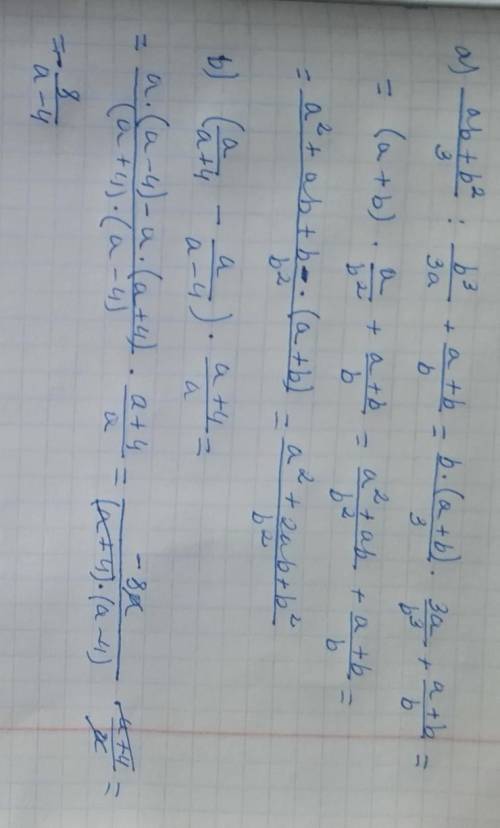 a) (ab+b²)/3 : b³/3a + (a+b)/b = b·(a+b)/3 · 3a/b³ + (a+b)/b =
= (a+b) · a/b² + (a+b)/b = (a²+ab)/b² + (a+b)/b =
= (a²+ab+b·(a+b))/b² = (a²+2ab+b²)/b²
b) (a/(a+4) - a/(a-4)) · (a+4)/a =
= (a·(a-4)-a·(a+4))/((a+4)·(a-4)) · (a+4)/a = -8a/((a+4)·(a-4)) · (a+4)/a =
= - 8/(a-4)